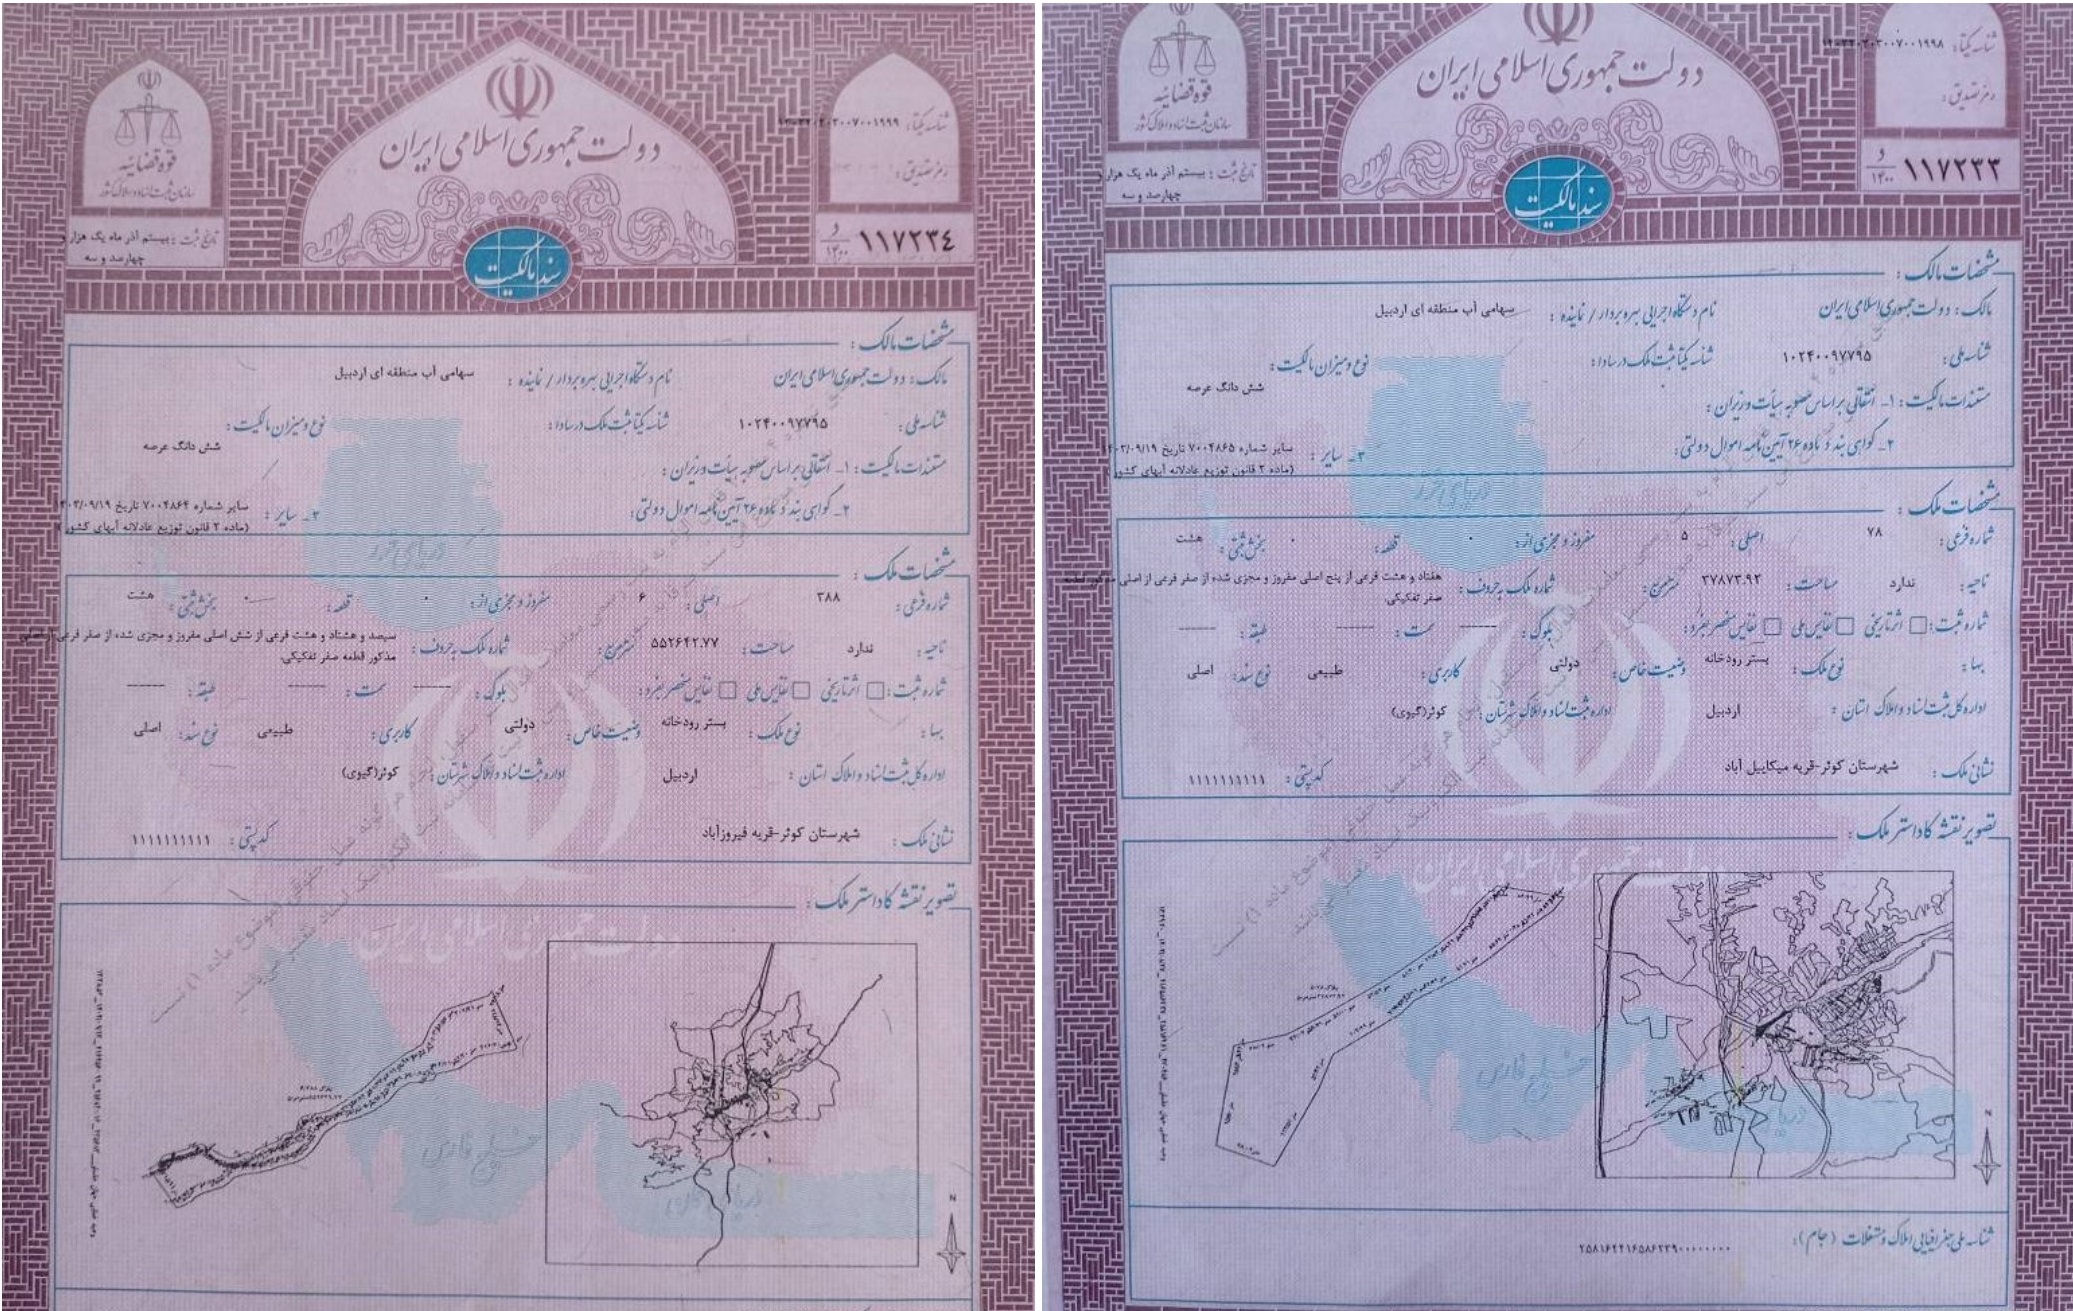 قوه قضائیه
سازمان ثبت اسناد و املاک کشور
تاریخ ثبت : بیستم آذر ماه یک هزار و
چهارصد و سه
دولت جمهوری اسلامی ایران
سند مالکیت
شناسه یکتا:
رمز تصدیق :
۱۱۷۲۳۴ د/۱۴۰۰
مشخصات مالک :
مالک : دولت جمهوری اسلامی ایران نام دستگاه اجرایی بهره بردار / نماینده : سهامی آب منطقه ای اردبیل
شناسه ملی : ۱۰۲۴۰۰۹۷۷۹۵ شناسه یکتا ثبت ملک در سادا : نوع و میزان مالکیت :
شش دانگ عرصه
مستندات مالکیت : ۱- انتقالی بر اساس مصوبه هیأت وزیران :
۲- گواهی بند د ماده ۲۶ آیین نامه اموال دولتی : ۳- سایر : سایر شماره ۷۰۰۴۸۶۴ تاریخ ۱۴۰۳/۰۹/۱۹
(ماده ۲ قانون توزیع عادلانه آبهای کشور)
مشخصات ملک :
شماره فرعی : ۳۸۸ اصلی : ۶ مفروز و مجزی از : ۰ قطعه : ۰ بخش ثبتی : هشت
ناحیه : ندارد مساحت : ۵۵۲۶۴۲.۷۷ مترمربع : شماره ملک به حروف : سیصد و هشتاد و هشت فرعی از شش اصلی مفروز و مجزی شده از صفر فرعی از اصلی
مذکور قطعه صفر تفکیکی.
شماره ثبت : □ اثر تاریخی □ نفایس ملی □ نفایس منحصر بفرد : بلوک : ------ سمت : ------ طبقه : ------
بها : نوع ملک : بستر رودخانه وضعیت خاص : دولتی کاربری : طبیعی نوع سند : اصلی
اداره کل ثبت اسناد و املاک استان : اردبیل اداره ثبت اسناد و املاک شهرستان : کوثر(گیوی)
نشانی ملک : شهرستان کوثر-قریه فیروزآباد کد پستی : ۱۱۱۱۱۱۱۱۱۱
تصویر نقشه کاداستر ملک :
دریای خزر
خلیج فارس
دریای عمان
دولت جمهوری اسلامی ایران
N
قوه قضائیه
سازمان ثبت اسناد و املاک کشور
تاریخ ثبت : بیستم آذر ماه یک هزار و
چهارصد و سه
دولت جمهوری اسلامی ایران
سند مالکیت
شناسه یکتا:
رمز تصدیق :
۱۱۷۲۳۳ د/۱۴۰۰
مشخصات مالک :
مالک : دولت جمهوری اسلامی ایران نام دستگاه اجرایی بهره بردار / نماینده : سهامی آب منطقه ای اردبیل
شناسه ملی : ۱۰۲۴۰۰۹۷۷۹۵ شناسه یکتا ثبت ملک در سادا : نوع و میزان مالکیت :
شش دانگ عرصه
مستندات مالکیت : ۱- انتقالی بر اساس مصوبه هیأت وزیران :
۲- گواهی بند د ماده ۲۶ آیین نامه اموال دولتی : ۳- سایر : سایر شماره ۷۰۰۴۸۶۵ تاریخ ۱۴۰۳/۰۹/۱۹
(ماده ۲ قانون توزیع عادلانه آبهای کشور)
مشخصات ملک :
شماره فرعی : ۷۸ اصلی : ۵ مفروز و مجزی از : ۰ قطعه : ۰ بخش ثبتی : هشت
ناحیه : ندارد مساحت : ۳۷۸۷۳.۹۲ مترمربع : شماره ملک به حروف : هفتاد و هشت فرعی از پنج اصلی مفروز و مجزی شده از صفر فرعی از اصلی مذکور قطعه
صفر تفکیکی.
شماره ثبت : □ اثر تاریخی □ نفایس ملی □ نفایس منحصر بفرد : بلوک : ------ سمت : ------ طبقه : ------
بها : نوع ملک : بستر رودخانه وضعیت خاص : دولتی کاربری : طبیعی نوع سند : اصلی
اداره کل ثبت اسناد و املاک استان : اردبیل اداره ثبت اسناد و املاک شهرستان : کوثر(گیوی)
نشانی ملک : شهرستان کوثر-قریه میکاییل آباد کد پستی : ۱۱۱۱۱۱۱۱۱۱
تصویر نقشه کاداستر ملک :
دریای خزر
خلیج فارس
دولت جمهوری اسلامی ایران
N
شناسه ملی جغرافیایی املاک و مستغلات (جام) : ۲۵۸۱۶۲۴۱۶۵۸۶۲۳۹۰۰۰۰۰۰۰۰